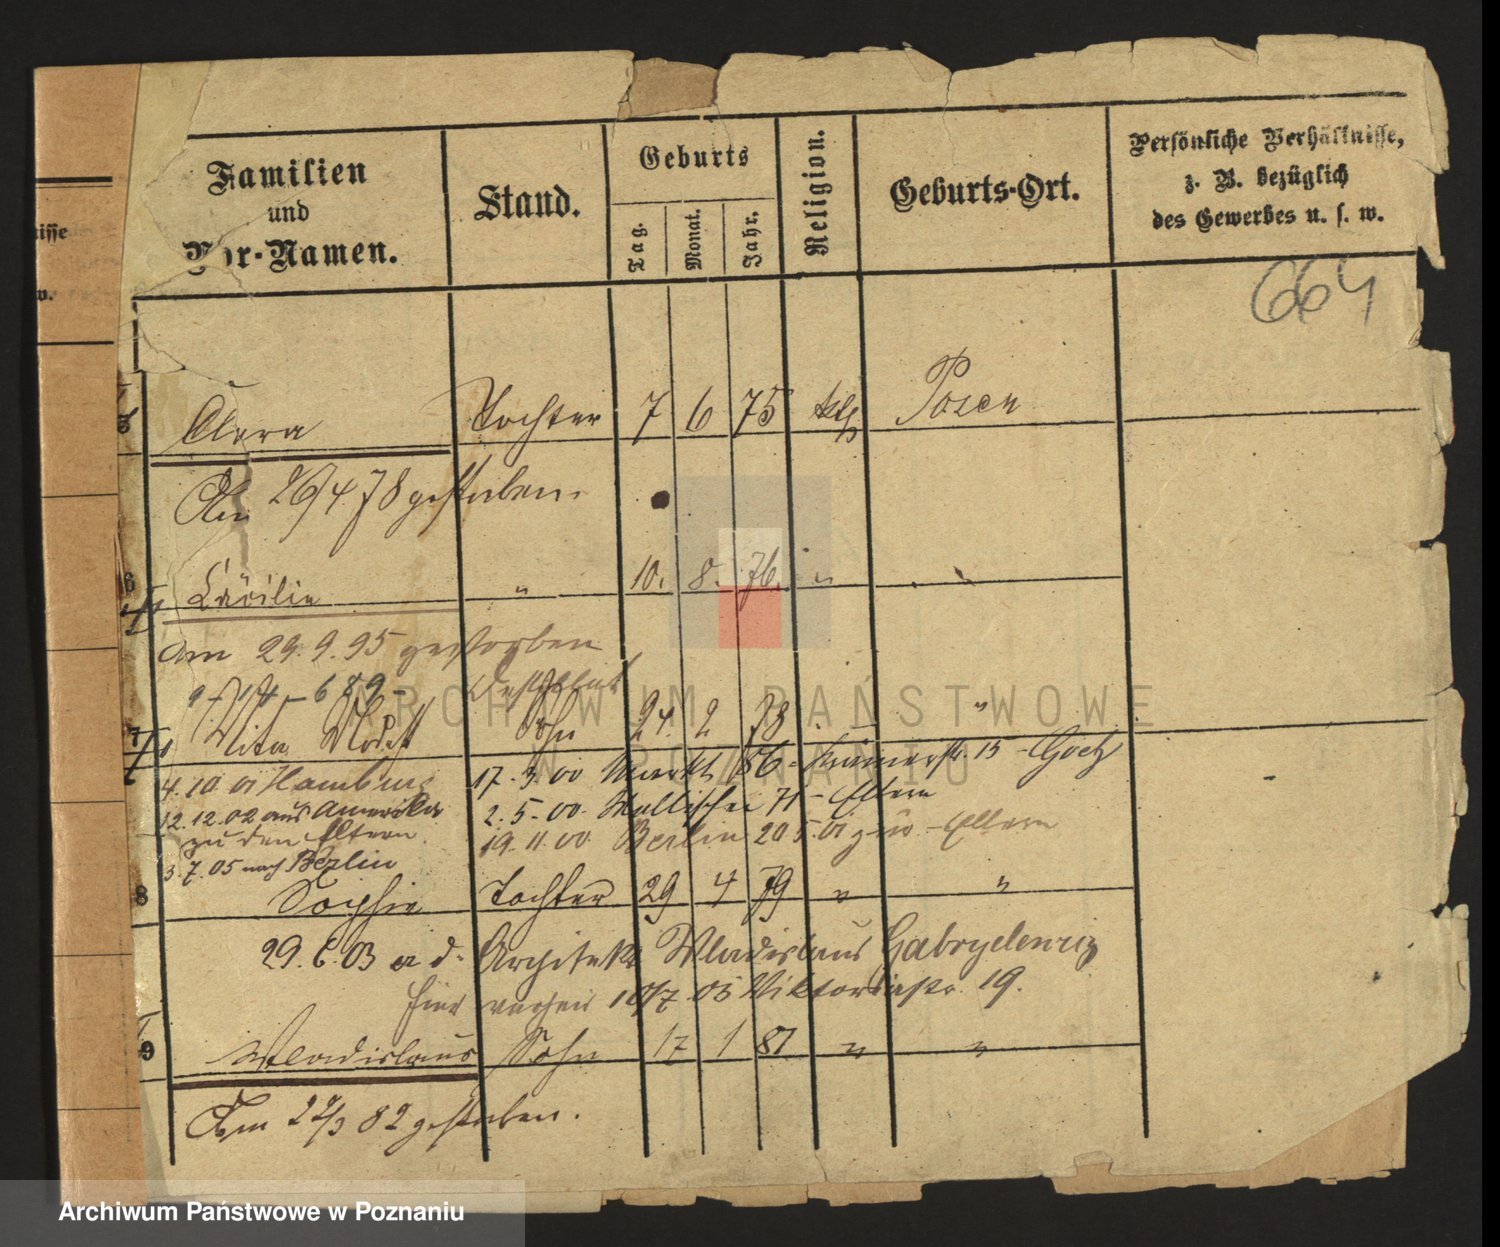 isse
w.
Familien
und
Vor-Namen.
Stand.
Geburts
Tag.
Monat.
Jahr.
Religion.
Geburts-Ort.
Persönliche Verhältnisse,
z. B. bezüglich
des Gewerbes u. s. w.
664
Clara Tochter 7 6 75 ktl Posen
Am 26/4 78 gestorben.
6 Cäcilie " 10. 8. 76. " "
am 29.9.95 gestorben
689
7 Sohn 24. 2 78 "
4.10.01 Hamburg 17.3.00 Markt 86 - Krämerstr. 15 -
12.12.02 aus Amerika 2.5.00. Wallischei 71 - Eltern
zu den Eltern 19.11.00. Berlin 20 5.01 - Eltern
3.7.05 nach Berlin
8 Sophie Tochter 29 4 79 " "
29.6.03 Architekt Wladislaus
10/7 03 Viktoriastr. 19.
9 Wladislaus Sohn 17 1 81 " "
Am 82 gestorben.
ARCHIWUM PAŃSTWOWE
W POZNANIU
Archiwum Państwowe w Poznaniu